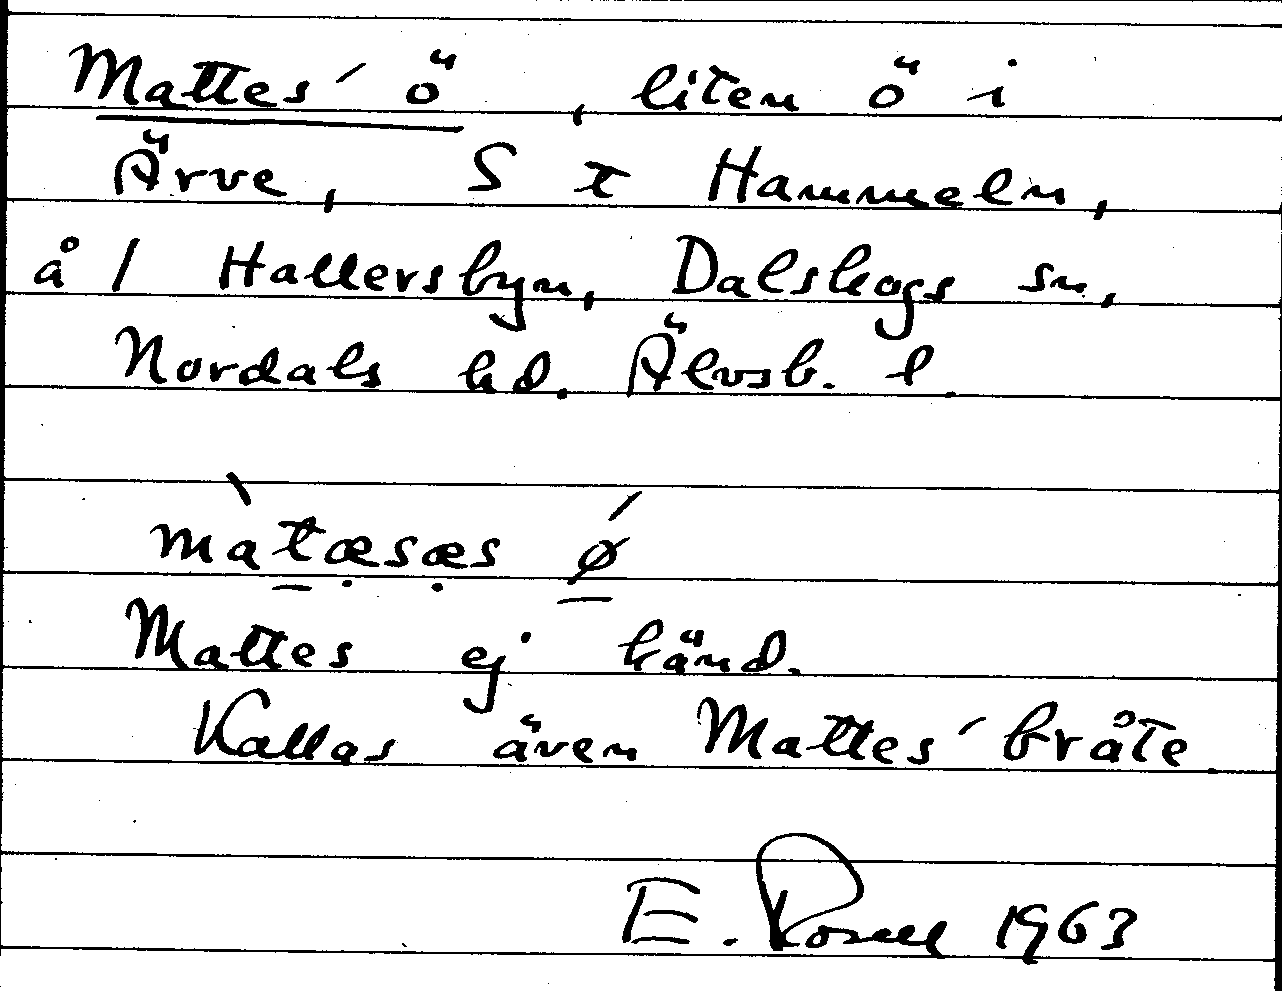 Mattes' ö, liten ö i
Ärve, S t Hammeln,
å / Hallersbyn, Dalskogs sn,
Nordals hd. Älvsb. l.
màtæsæs ǿ
Mattes ej känd.
Kallas även Mattes' bråte
E. Rosell 1963